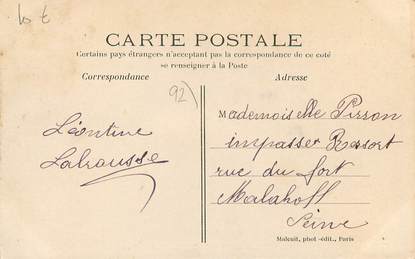 10 €
CARTE POSTALE
Certains pays étrangers n'acceptant pas la correspondance de ce coté
se renseigner à la Poste
Correspondance
Adresse
92)
Léontine
Labrousse
Mademoiselle Pirson
impasse Ressort
rue du fort
Malakoff
Seine
Maleuit, phot-édit., Paris